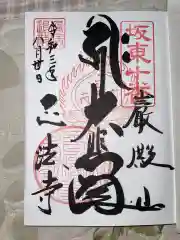 坂東十番
巌殿山
大悲閣
令和三年
月廿日
正法寺